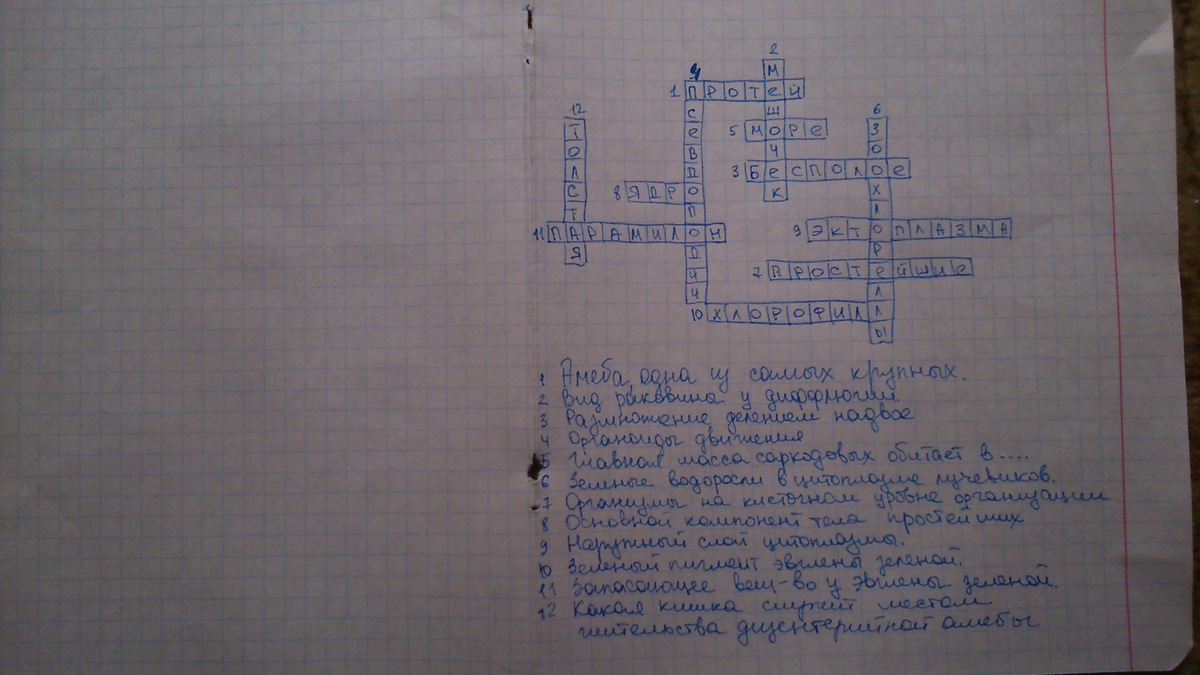 2
4
М
1 ПРОТЕЙ
12
С
Ш
6
Т
Е
5 МОРЕ
З
О
В
Ч
О
Л
Д
3 БЕСПОЛОЕ
С
8 ЯДРО
К
Х
Т
П
Л
11 ПАРАМИЛОН
9 ЭКТОПЛАЗМА
Я
Д
Р
И
7 ПРОСТЕЙШИЕ
И
Л
10 ХЛОРОФИЛЛ
Ы
1 Амеба, одна из самых крупных.
2 Вид раковина у диффлюгии.
3 Размножение делением надвое
4 Органоиды движения
5 Главная масса саркодовых обитает в ....
6 Зеленые водоросли в цитоплазме лучевиков.
7 Организмы на клеточном уровне организации
8 Основной компонент тела простейших
9 Наружный слой цитоплазмы.
10 Зеленый пигмент эвглены зеленой.
11 Запасающее вещ-во у эвглены зеленой.
12 Какая кишка служит местом
жительства дизентерийной амебы